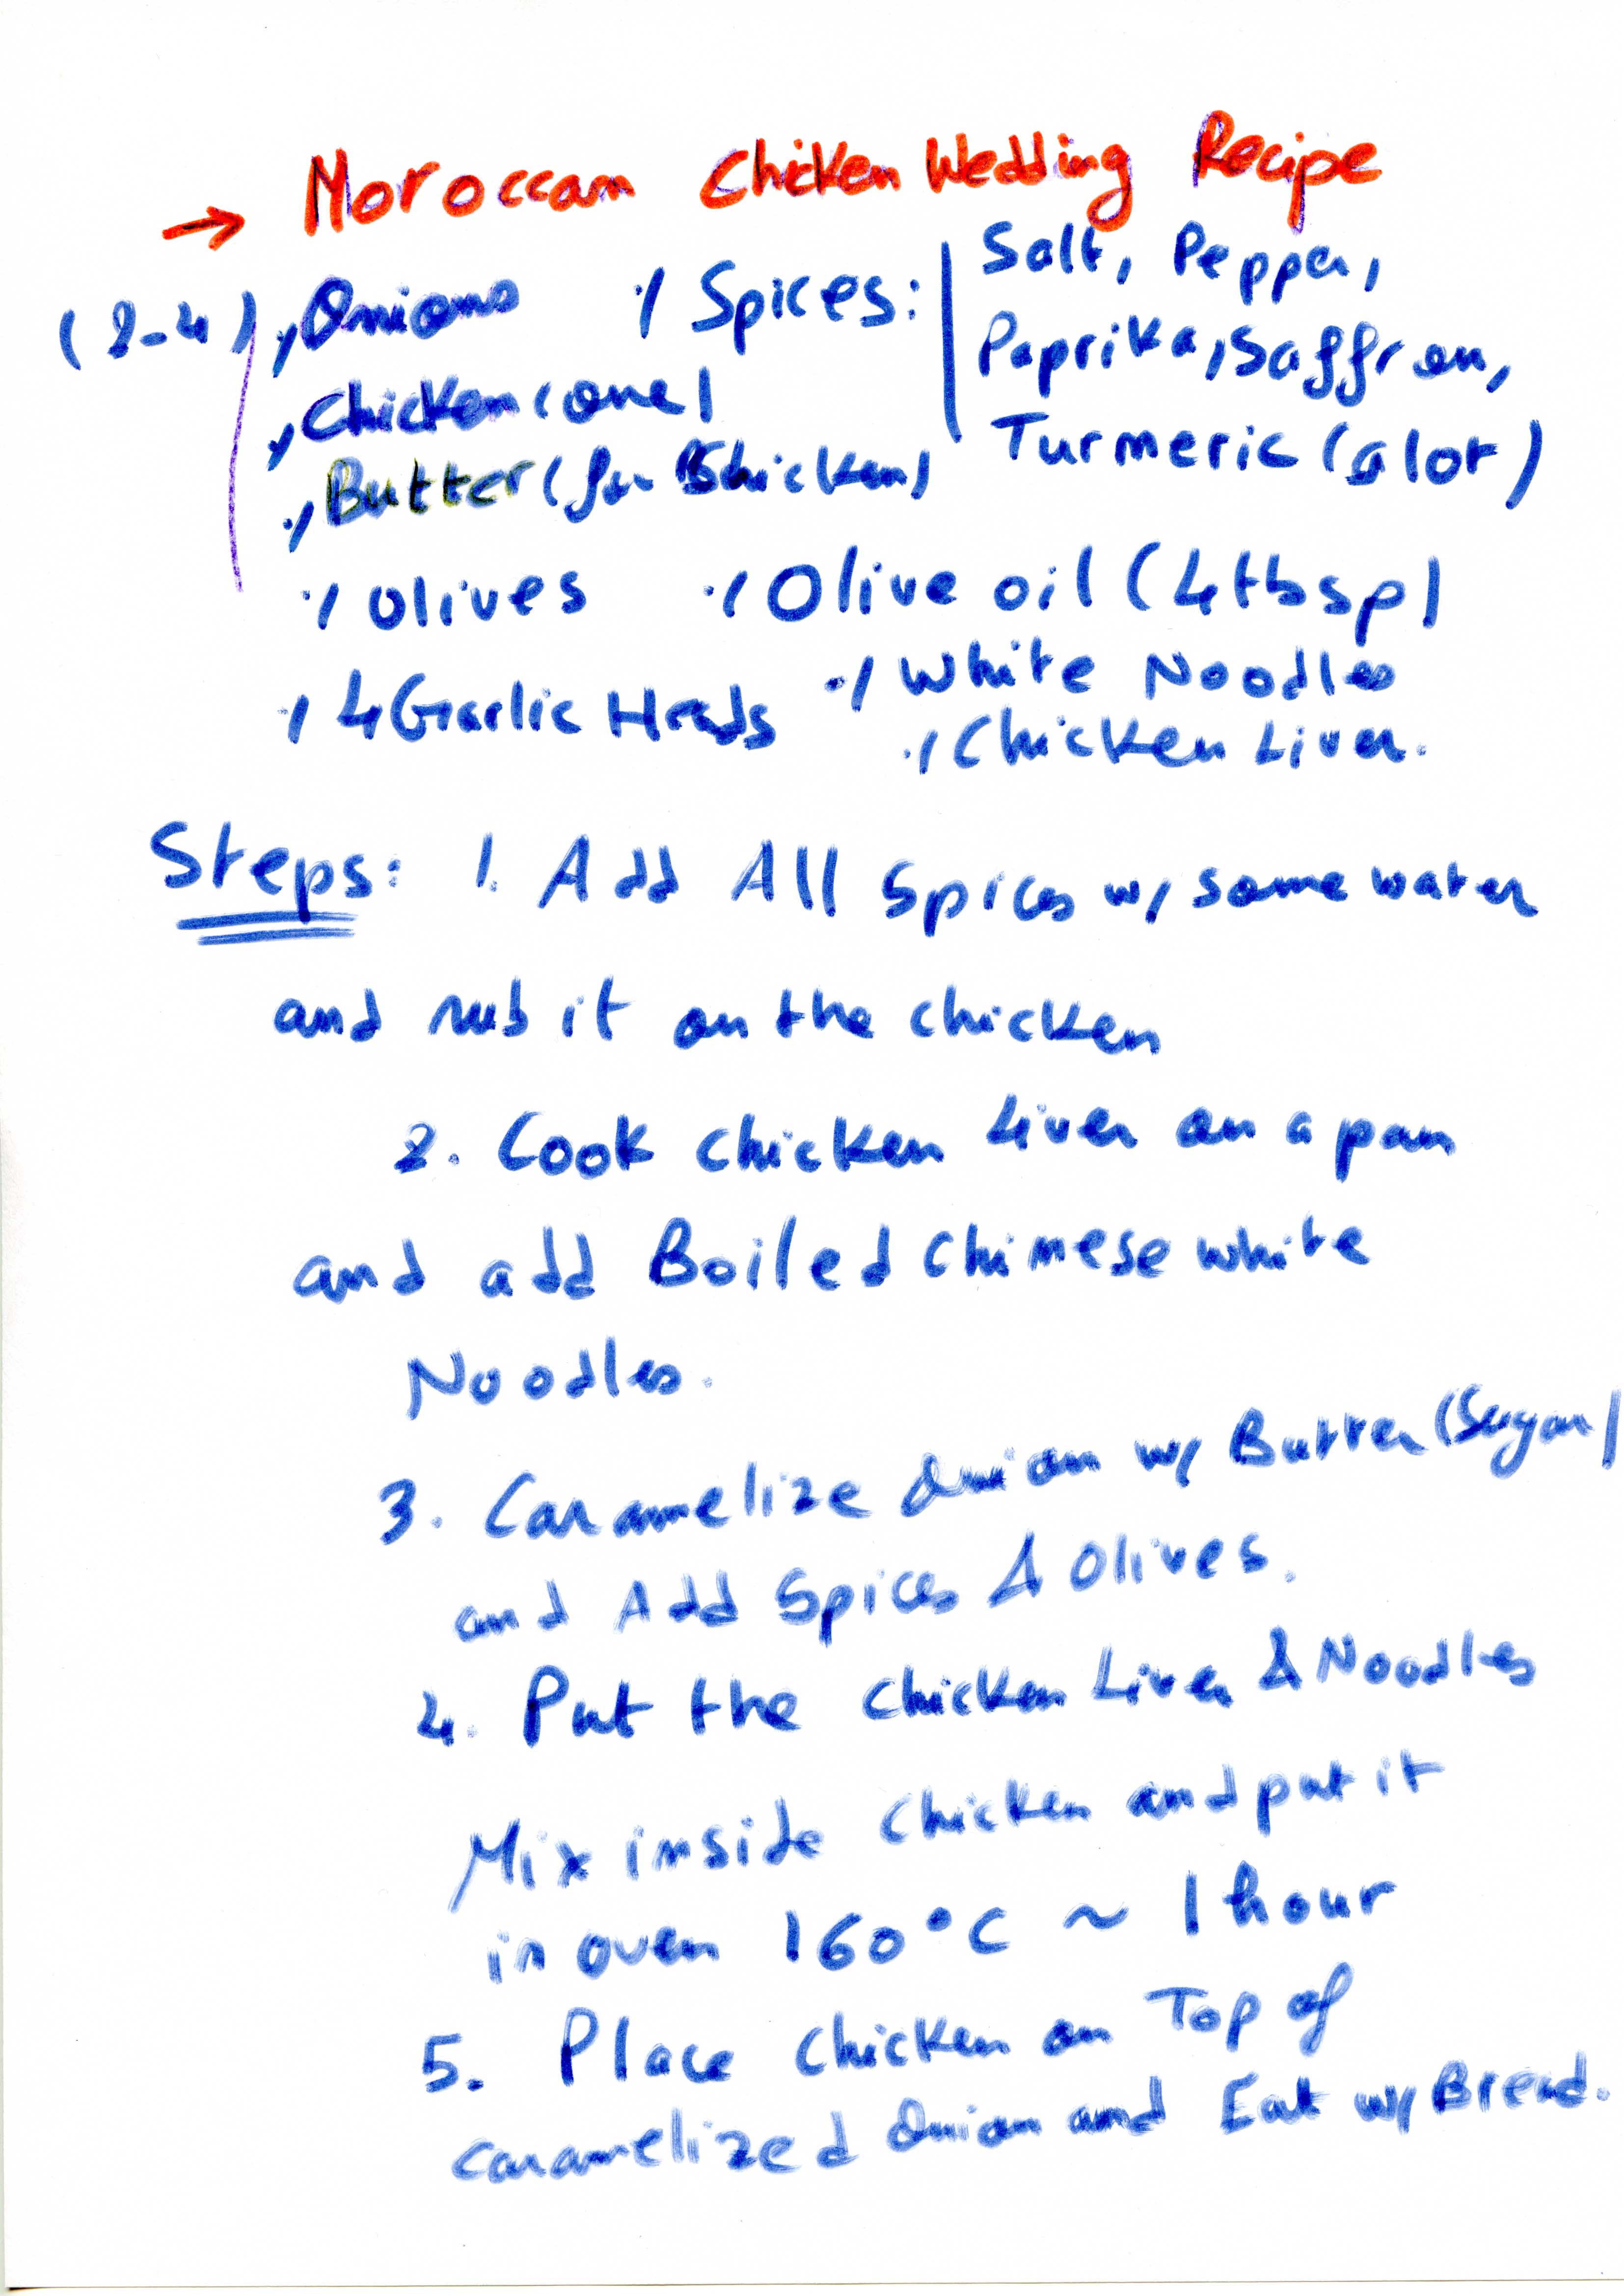 → Moroccan Chicken Wedding Recipe
(2-4) ·/ Onions ·/ Spices: | Salt, Pepper,
Paprika, Saffron,
Turmeric (a lot)
·/ Chicken (one)
·/ Butter (for Chicken)
·/ Olives ·/ Olive oil (4tbsp)
·/ 4 Garlic Heads ·/ White Noodles
·/ Chicken Liver.
Steps: 1. Add All Spices w/ some water
and rub it on the chicken
2. Cook chicken Liver on a pan
and add Boiled Chinese white
Noodles.
3. Caramelize Onion w/ Butter (Sugar)
and Add Spices & Olives.
4. Put the Chicken Liver & Noodles
Mix inside Chicken and put it
in oven 160°C ~ 1 hour
5. Place Chicken on Top of
caramelized Onion and Eat w/ Bread.